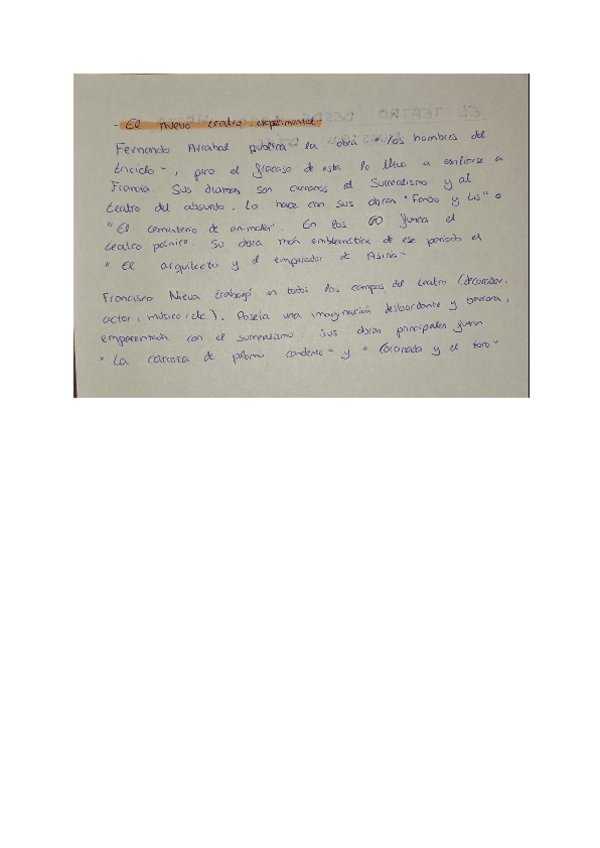 - El nuevo teatro experimental
Fernando Arrabal publica la obra "los hombres del
triciclo", pero el fracaso de esta lo lleva a exiliarse a
Francia. Sus dramas son cercanos al Surrealismo y al
teatro del absurdo. Lo hace con sus obras "Fando y Lis" o
"El cementerio de animales". En los 60 funda el
teatro pánico. Su obra más emblemática de ese periodo es
"El arquitecto y el emperador de Asiria"
Francisco Nieva trabajó en todos los campos del teatro (decorador,
actor, músico, etc). Poseía una imaginación desbordante y barroca,
emparentada con el surrealismo. Sus obras principales fueron
"La carroza de plomo candente" y "Coronada y el toro"